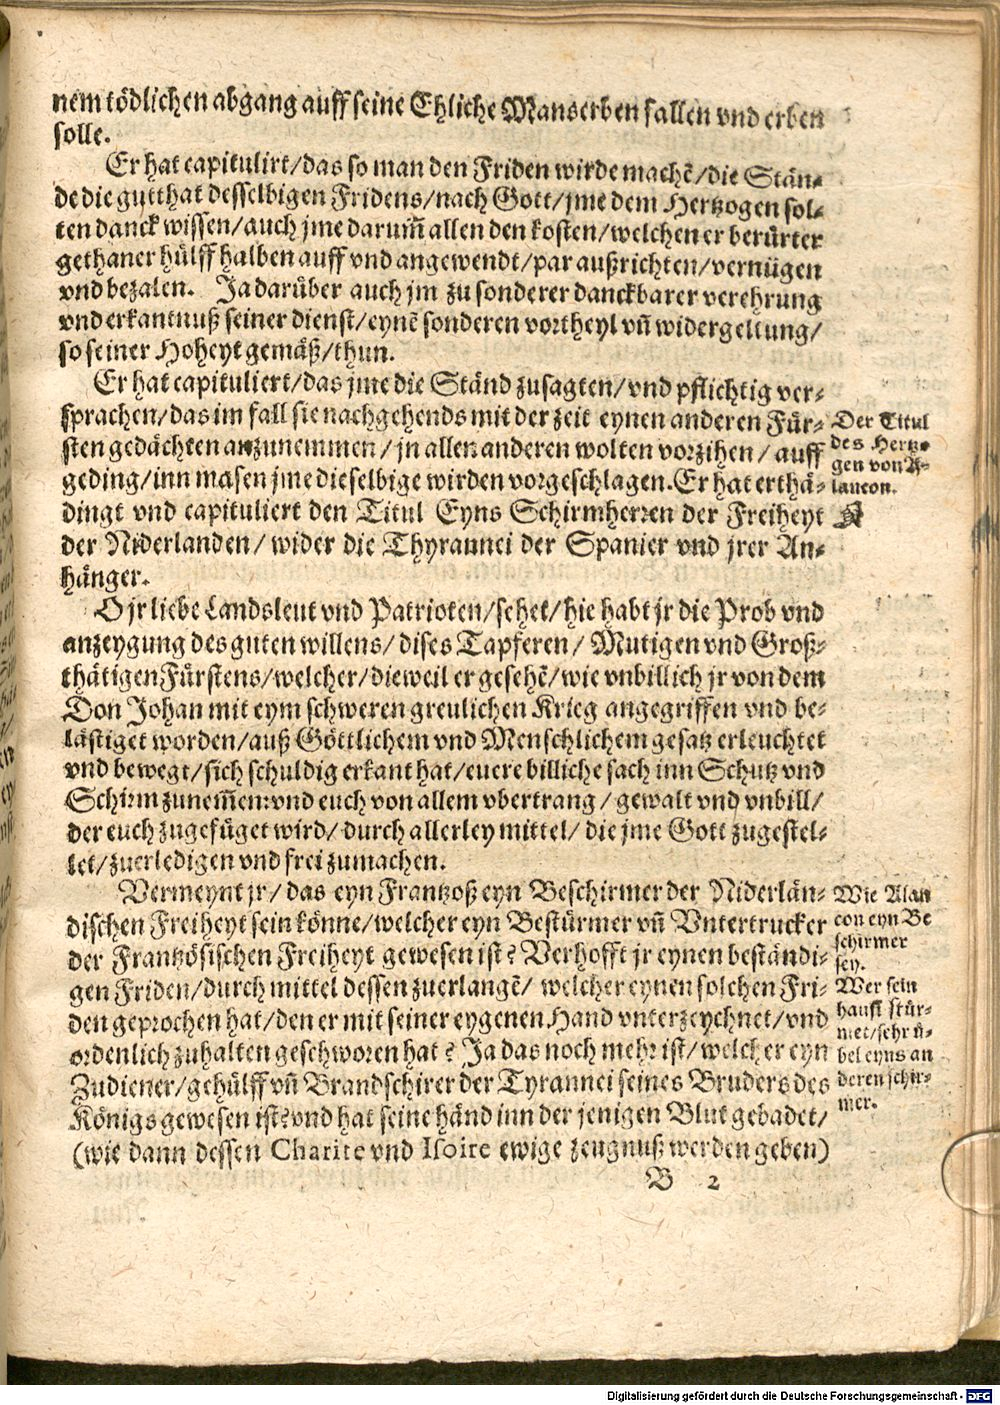 nem tödlichen abgang auff seine Ehliche Manserben fallen vnd erben
solle.
Er hat capitulirt/das so man den Friden wirde machẽ/die Stän⸗
de die gutthat desselbigen Fridens/nach Gott/jme dem Hertzogen sol⸗
ten danck wissen/auch jme darum̃ allen den kosten/welchen er berürter
gethaner hülff halben auff vnd angewendt/par außrichten/vernügen
vnd bezalen. Ja darüber auch jm zu sonderer danckbarer verehrung
vnd erkantnuß seiner dienst/eynẽ sonderen vortheyl vñ widergeltung/
so seiner Hoheyt gemäß/thun.
Er hat capituliert/das jme die Ständ zusagten/vnd pflichtig ver⸗
sprachen/das im fall sie nachgehends mit der zeit eynen anderen Für⸗
sten gedächten anzunemmen/jn allen anderen wolten vorzihen/auff
geding/inn masen jme dieselbige wirden vorgeschlagen. Er hat erthä⸗
dingt vnd capituliert den Titul Eyns Schirmherren der Freiheyt
der Niderlanden/wider die Thyrannei der Spanier vnd jrer An⸗
hänger.
Der Titul
des Hertzo⸗
gen von A⸗
lancon.
O jr liebe Landsleut vnd Patrioten/sehet/hie habt jr die Prob vnd
anzeygung des guten willens/dises Tapferen/Mutigen vnd Groß⸗
thätigen Fürstens/welcher/dieweil er gesehẽ/wie vnbillich jr von dem
Don Johan mit eym schweren greulichen Krieg angegriffen vnd be⸗
lästiget worden/auß Göttlichem vnd Menschlichem gesatz erleuchtet
vnd bewegt/sich schuldig erkant hat/euere billiche sach inn Schutz vnd
Schirm zunem̃en: vnd euch von allem vbertrang/gewalt vnd vnbill/
der euch zugefüget wird/durch allerley mittel/die jme Gott zugestel⸗
let/zuerledigen vnd frei zumachen.
Vermeynt jr/das eyn Frantzoß eyn Beschirmer der Niderlän⸗
dischen Freiheyt sein könne/welcher eyn Bestürmer vñ Vntertrucker
der Frantzösischen Freiheyt gewesen ist? Verhofft jr eynen beständi⸗
gen Friden/durch mittel dessen zuerlangẽ/welcher eynen solchen Fri⸗
den geprochen hat/den er mit seiner eygenen Hand vnterzeychnet/vnd
ordenlich zuhalten geschworen hat? Ja das noch mehr ist/welcher eyn
Zudiener/gehülff vñ Brandschirer der Tyrannei seines Bruders des
Königs gewesen ist? vnd hat seine händ inn der jenigen Blut gebadet/
(wie dann dessen Charite vnd Isoire ewige zeugnuß werden geben)
Wie Alan
con eyn Be
schirmer
sey.
Wer sein
hauß stür⸗
met/sehr ü⸗
bel eyns an
deren schir⸗
mer.
B 2
Digitalisierung gefördert durch die Deutsche Forschungsgemeinschaft - DFG